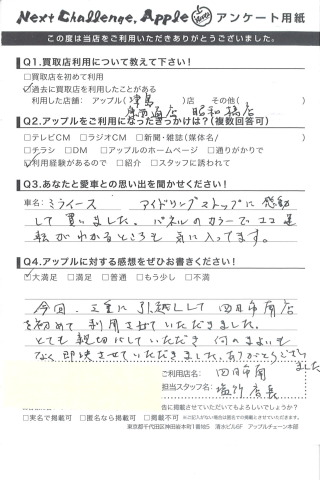 Next Challenge, Apple アンケート用紙
この度は当店をご利用いただきありがとうございました。
Q1.買取店利用について教えて下さい！
□買取店を初めて利用
☑過去に買取店を利用したことがある
利用した店舗： アップル（津島）店 その他（ ）
通店 昭和橋店
Q2.アップルをご利用になったきっかけは？（複数回答可）
□テレビCM □ラジオCM □新聞・雑誌（媒体名/ ）
☑チラシ □DM □アップルのホームページ □通りがかりで
☑利用経験があるので □紹介 □スタッフに誘われて
Q3.あなたと愛車との思い出を聞かせください！
車名： ミライース アイドリングストップに感動
して買いました。パネルのカラーでエコ運
転がわかるところも気に入ってます。
Q4.アップルに対する感想をぜひお書きください！
☑大満足 □満足 □普通 □もう少し □不満
今回、三重に引越しして四日市南店
を初めて利用させていただきました。
とても親切にしていただき何のまよいも
なく即決させていただきました。ありがとうござい
ました
ご利用店名： 四日市南
担当スタッフ名： 塩竹店長
告に掲載させていただいてもよろしいでしょうか？
□実名で掲載可 □匿名なら掲載可 □掲載不可
東京都千代田区神田岩本町1番地5 清水ビル6F アップルチェーン本部